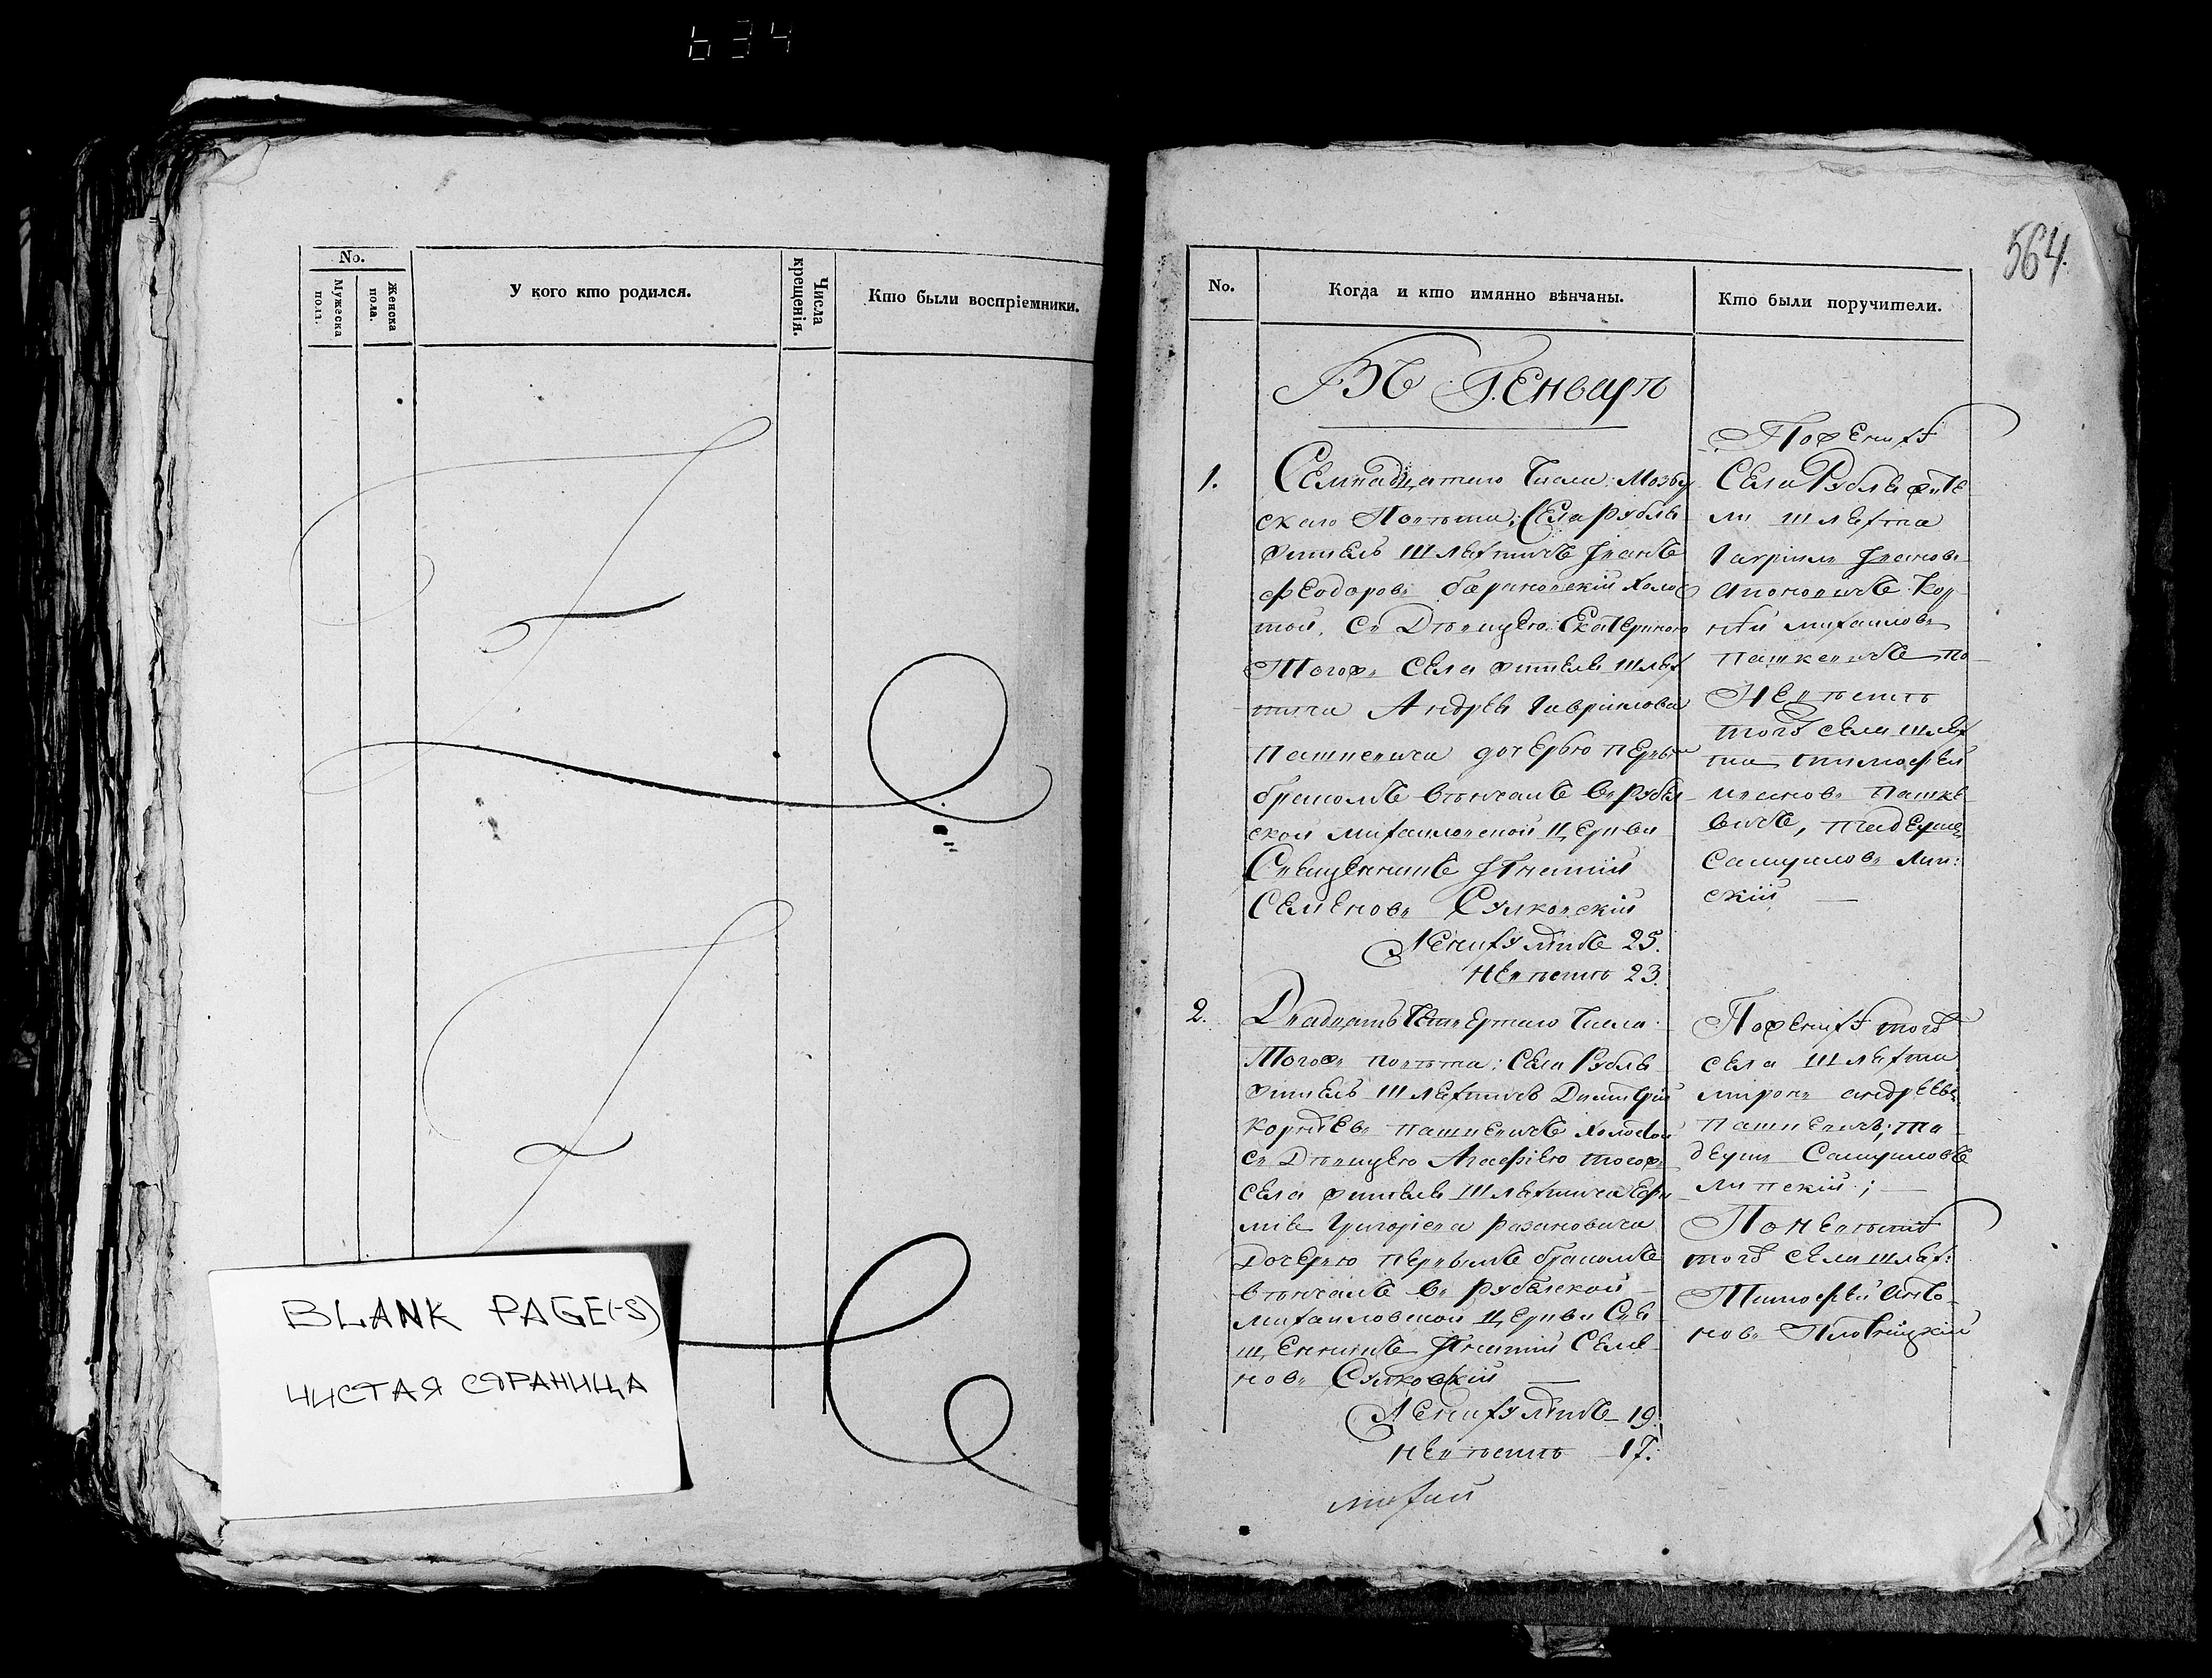 634
No.
Мужеска пола.
Женска пола.
У кого кто родился.
Числа крещенія.
Кто были воспріемники.
BLANK PAGE(-S)
ЧИСТАЯ СТРАНИЦА
564.
No.
Когда и кто имянно вѣнчаны.
Кто были поручители.
Въ Генварѣ
1.
Семнадцатаго Числа: Мозыр
скаго Повѣта; Села Рубля
житель Шляхтичъ Іванъ
Феодоровъ Барановскій холос
той, съ Дѣвицею Екатериною
Тогожъ Села жителя шлях
тича Андрея Гаврилова
Пашкевича дочерью первымъ
бракомъ вѣнчанъ въ Рубел
ской Михайловской Церкви
Священникъ Ігнатій
Семеновъ Сулковскій
Жениху лѣтъ 25.
невѣстѣ 23.
По женихѣ
Села Рубля жите
ли шляхта
Гаврыил Івановъ
Кор
нѣй Михайловъ
Пашкевичъ по
Невѣстѣ
тогожъ села шлях
та тимофей
Ивановъ Пашке
вичъ, тадеушъ
Самуиловъ Лип:
скій
2.
Двадцать Четвертаго Числа
Тогожъ повѣта: Села Рубля
житель Шляхтичъ Димитрій
Корнѣевъ Пашкевичъ Холостой
съ Дѣвицею Агафіею тогожъ
села жителя Шляхтича
Григоріева
Дочерью первымъ бракомъ
вѣнчанъ въ рубелской
михайловской Церкви Свя
щенникъ Ігнатій Семе
новъ Сулковскій
Жениху лѣтъ 19.
невѣстѣ 17.
По женихѣ тогожъ
села Шляхта
миронъ андреевъ
Пашкевичъ; та
деушъ Самуиловъ
Липскій;
По невѣстѣ
тогожъ села шлях:
Тимофей Анто
новъ Плотницкій